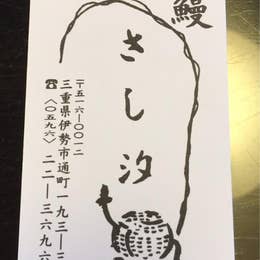 鰻
さし汐
〒五一六―〇〇一二
三重県伊勢市通町一九三―
☎〈〇五九六〉二二―三六九六